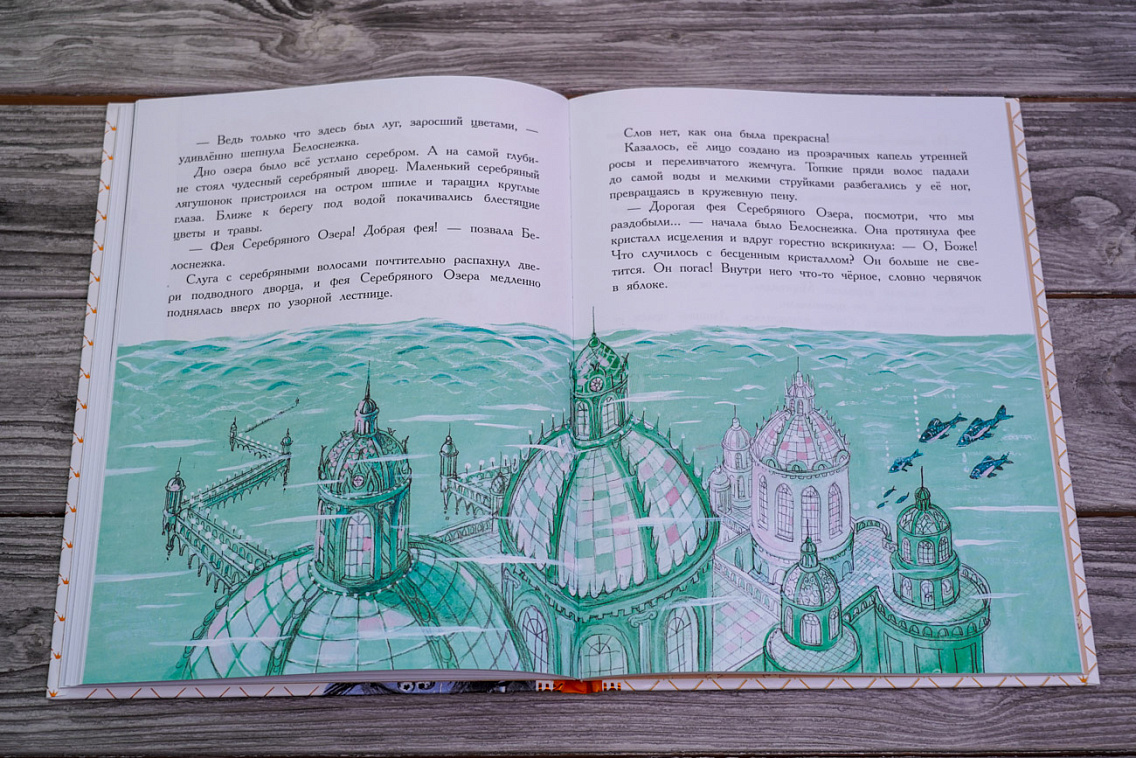 — Ведь только что здесь был луг, заросший цветами, —
удивлённо шепнула Белоснежка.
Дно озера было всё устлано серебром. А на самой глуби-
не стоял чудесный серебряный дворец. Маленький серебряный
лягушонок пристроился на остром шпиле и таращил круглые
глаза. Ближе к берегу под водой покачивались блестящие
цветы и травы.
— Фея Серебряного Озера! Добрая фея! — позвала Бе-
лоснежка.
Слуга с серебряными волосами почтительно распахнул две-
ри подводного дворца, и фея Серебряного Озера медленно
поднялась вверх по узорной лестнице.
Слов нет, как она была прекрасна!
Казалось, её лицо создано из прозрачных капель утренней
росы и переливчатого жемчуга. Топкие пряди волос падали
до самой воды и мелкими струйками разбегались у её ног,
превращаясь в кружевную пену.
— Дорогая фея Серебряного Озера, посмотри, что мы
раздобыли... — начала было Белоснежка. Она протянула фее
кристалл исцеления и вдруг горестно вскрикнула: — О, Боже!
Что случилось с бесценным кристаллом? Он больше не све-
тится. Он погас! Внутри него что-то чёрное, словно червячок
в яблоке.